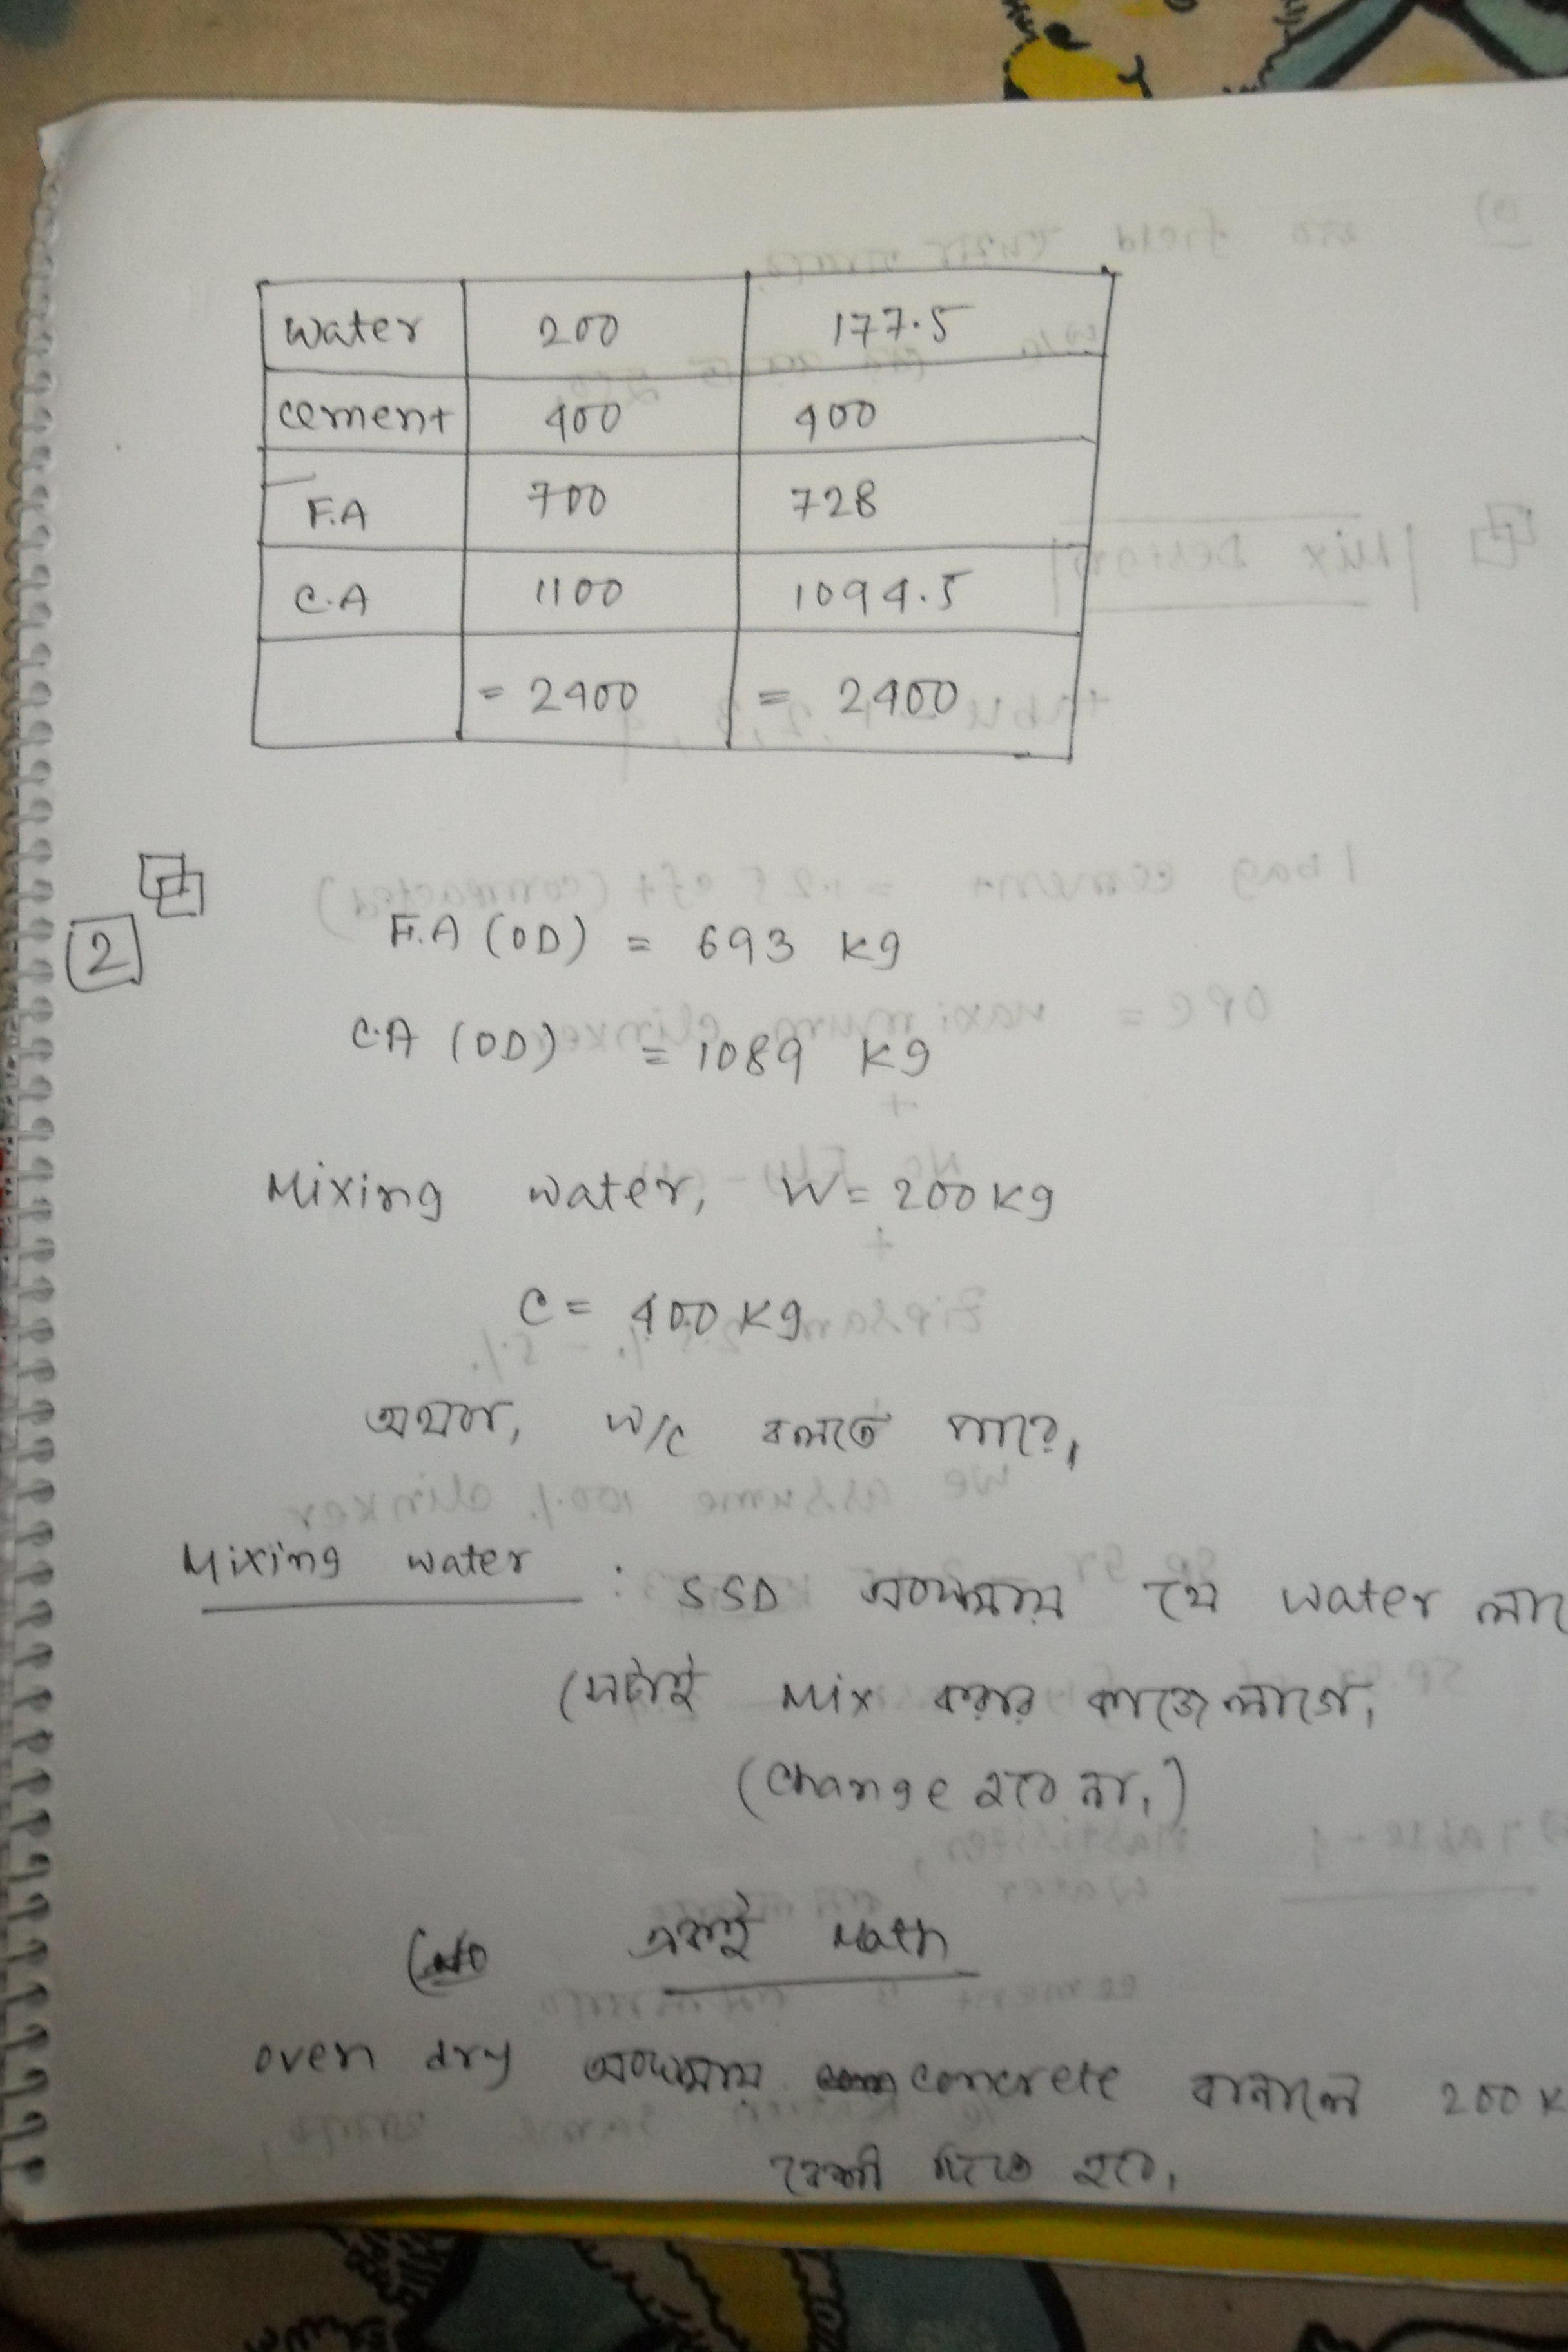 water 200 177.5
cement 400 400
F.A 700 728
C.A 1100 1094.5
= 2400 = 2400
2
F.A (OD) = 693 kg
C.A (OD) = 1089 kg
Mixing water, W = 200 kg
C = 400 kg
অথবা, W/C বলতে পারে,
Mixing water : SSD অবস্থায় যে water লাগে
সেটাই Mix করার কাজে লাগে,
(Change হবে না,)
একই Math
oven dry অবস্থায় concrete বানালে 200 K
বেশী দিতে হবে,